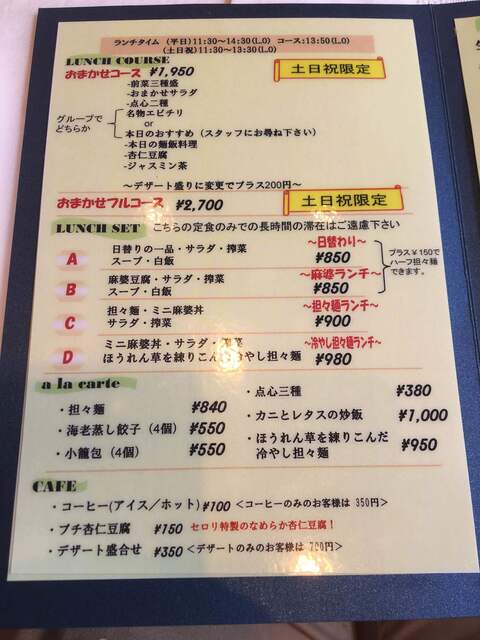 ランチタイム (平日)11:30〜14:30(L.O) コース:13:50(L.O)
(土日祝)11:30〜13:30(L.O)
LUNCH COURSE
おまかせコース ¥1,950 土日祝限定
-前菜三種盛
-おまかせサラダ
-点心二種
グループで
どちらか
名物エビチリ
or
本日のおすすめ (スタッフにお尋ね下さい)
-本日の麺飯料理
-杏仁豆腐
-ジャスミン茶
〜デザート盛りに変更でプラス200円〜
おまかせフルコース ¥2,700 土日祝限定
LUNCH SET こちらの定食のみでの長時間の滞在はご遠慮下さい
A 日替りの一品・サラダ・搾菜 〜日替わり〜
スープ・白飯 ¥850
B 麻婆豆腐・サラダ・搾菜 〜麻婆ランチ〜
スープ・白飯 ¥850
プラス¥150で
ハーフ担々麺
できます。
C 担々麺・ミニ麻婆丼 〜担々麺ランチ〜
サラダ・搾菜 ¥900
D ミニ麻婆丼・サラダ・搾菜 〜冷やし担々麺ランチ〜
ほうれん草を練りこんだ冷やし担々麺 ¥980
a la carte
・担々麺 ¥840
・海老蒸し餃子 (4個) ¥550
・小籠包 (4個) ¥550
・点心三種 ¥380
・カニとレタスの炒飯 ¥1,000
・ほうれん草を練りこんだ
冷やし担々麺 ¥950
CAFE
・コーヒー(アイス/ホット) ¥100 <コーヒーのみのお客様は 350円>
・プチ杏仁豆腐 ¥150 セロリ特製のなめらか杏仁豆腐!
・デザート盛合せ ¥350 <デザートのみのお客様は 700円>